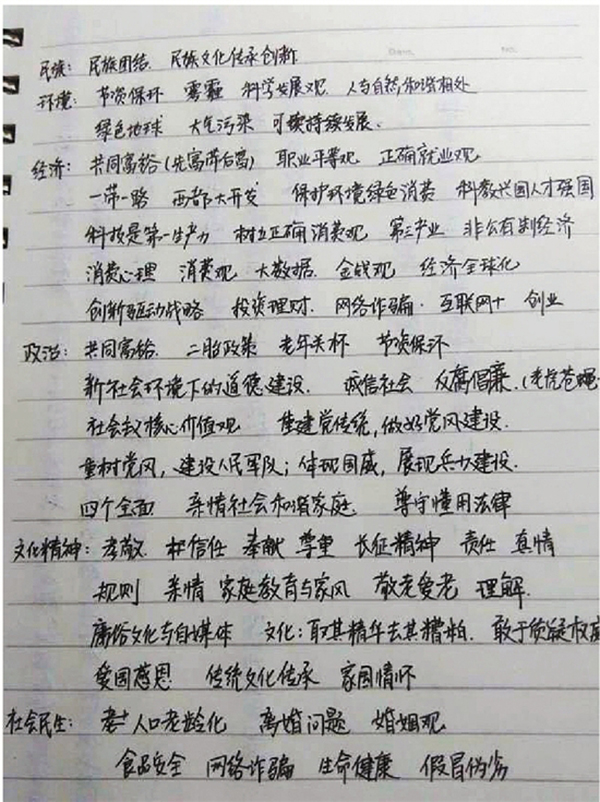 民族：民族团结 民族文化传承创新
环境：节资保环 雾霾 科学发展观 人与自然和谐相处
绿色地球 大气污染 可续持续发展.
经济：共同富裕(先富带后富) 职业平等观 正确就业观
一带一路 西部大开发 保护环境绿色消费 科教兴国人才强国
科技是第一生产力 树立正确消费观 第三产业 非公有制经济
消费心理 消费观 大数据 金钱观 经济全球化
创新驱动战略 投资理财. 网络诈骗. 互联网+ 创业
政治：共同富裕. 二胎政策 老年关怀 节资保环
新社会环境下的道德建设. 诚信社会 反腐倡廉.(老虎苍蝇
社会主义核心价值观 重建党传统,做好党风建设.
重树党风，建设人民军队；体现国威，展现兵力建设.
四个全面 亲情社会和谐家庭 尊守懂用法律
文化精神：孝敬. 信任 奉献 尊重 长征精神 责任 真情
规则 亲情 家庭教育与家风 敬老爱老 理解.
庸俗文化与自媒体 文化：取其精华去其糟粕. 敢于质疑权威
爱国感恩 传统文化传承 家国情怀
社会民生： 人口老龄化 离婚问题 婚姻观
食品安全 网络诈骗 生命健康 假冒伪劣